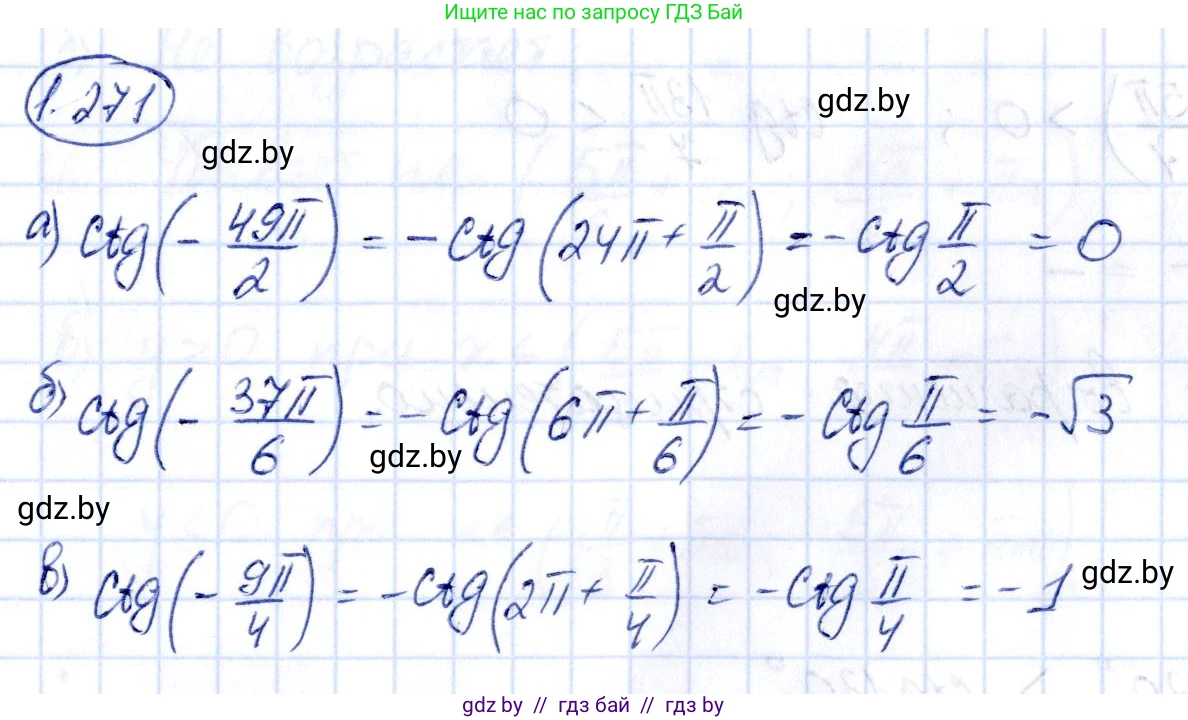 Ищите нас по запросу ГДЗ Бай
1.271
gdz.by
gdz.by
а) ctg(-49π/2) = -ctg(24π + π/2) = -ctg π/2 = 0
gdz.by
б) ctg(-37π/6) = -ctg(6π + π/6) = -ctg π/6 = -√3
gdz.by
gdz.by
в) ctg(-9π/4) = -ctg(2π + π/4) = -ctg π/4 = -1
gdz.by
gdz.by // гдз бай // gdz.by